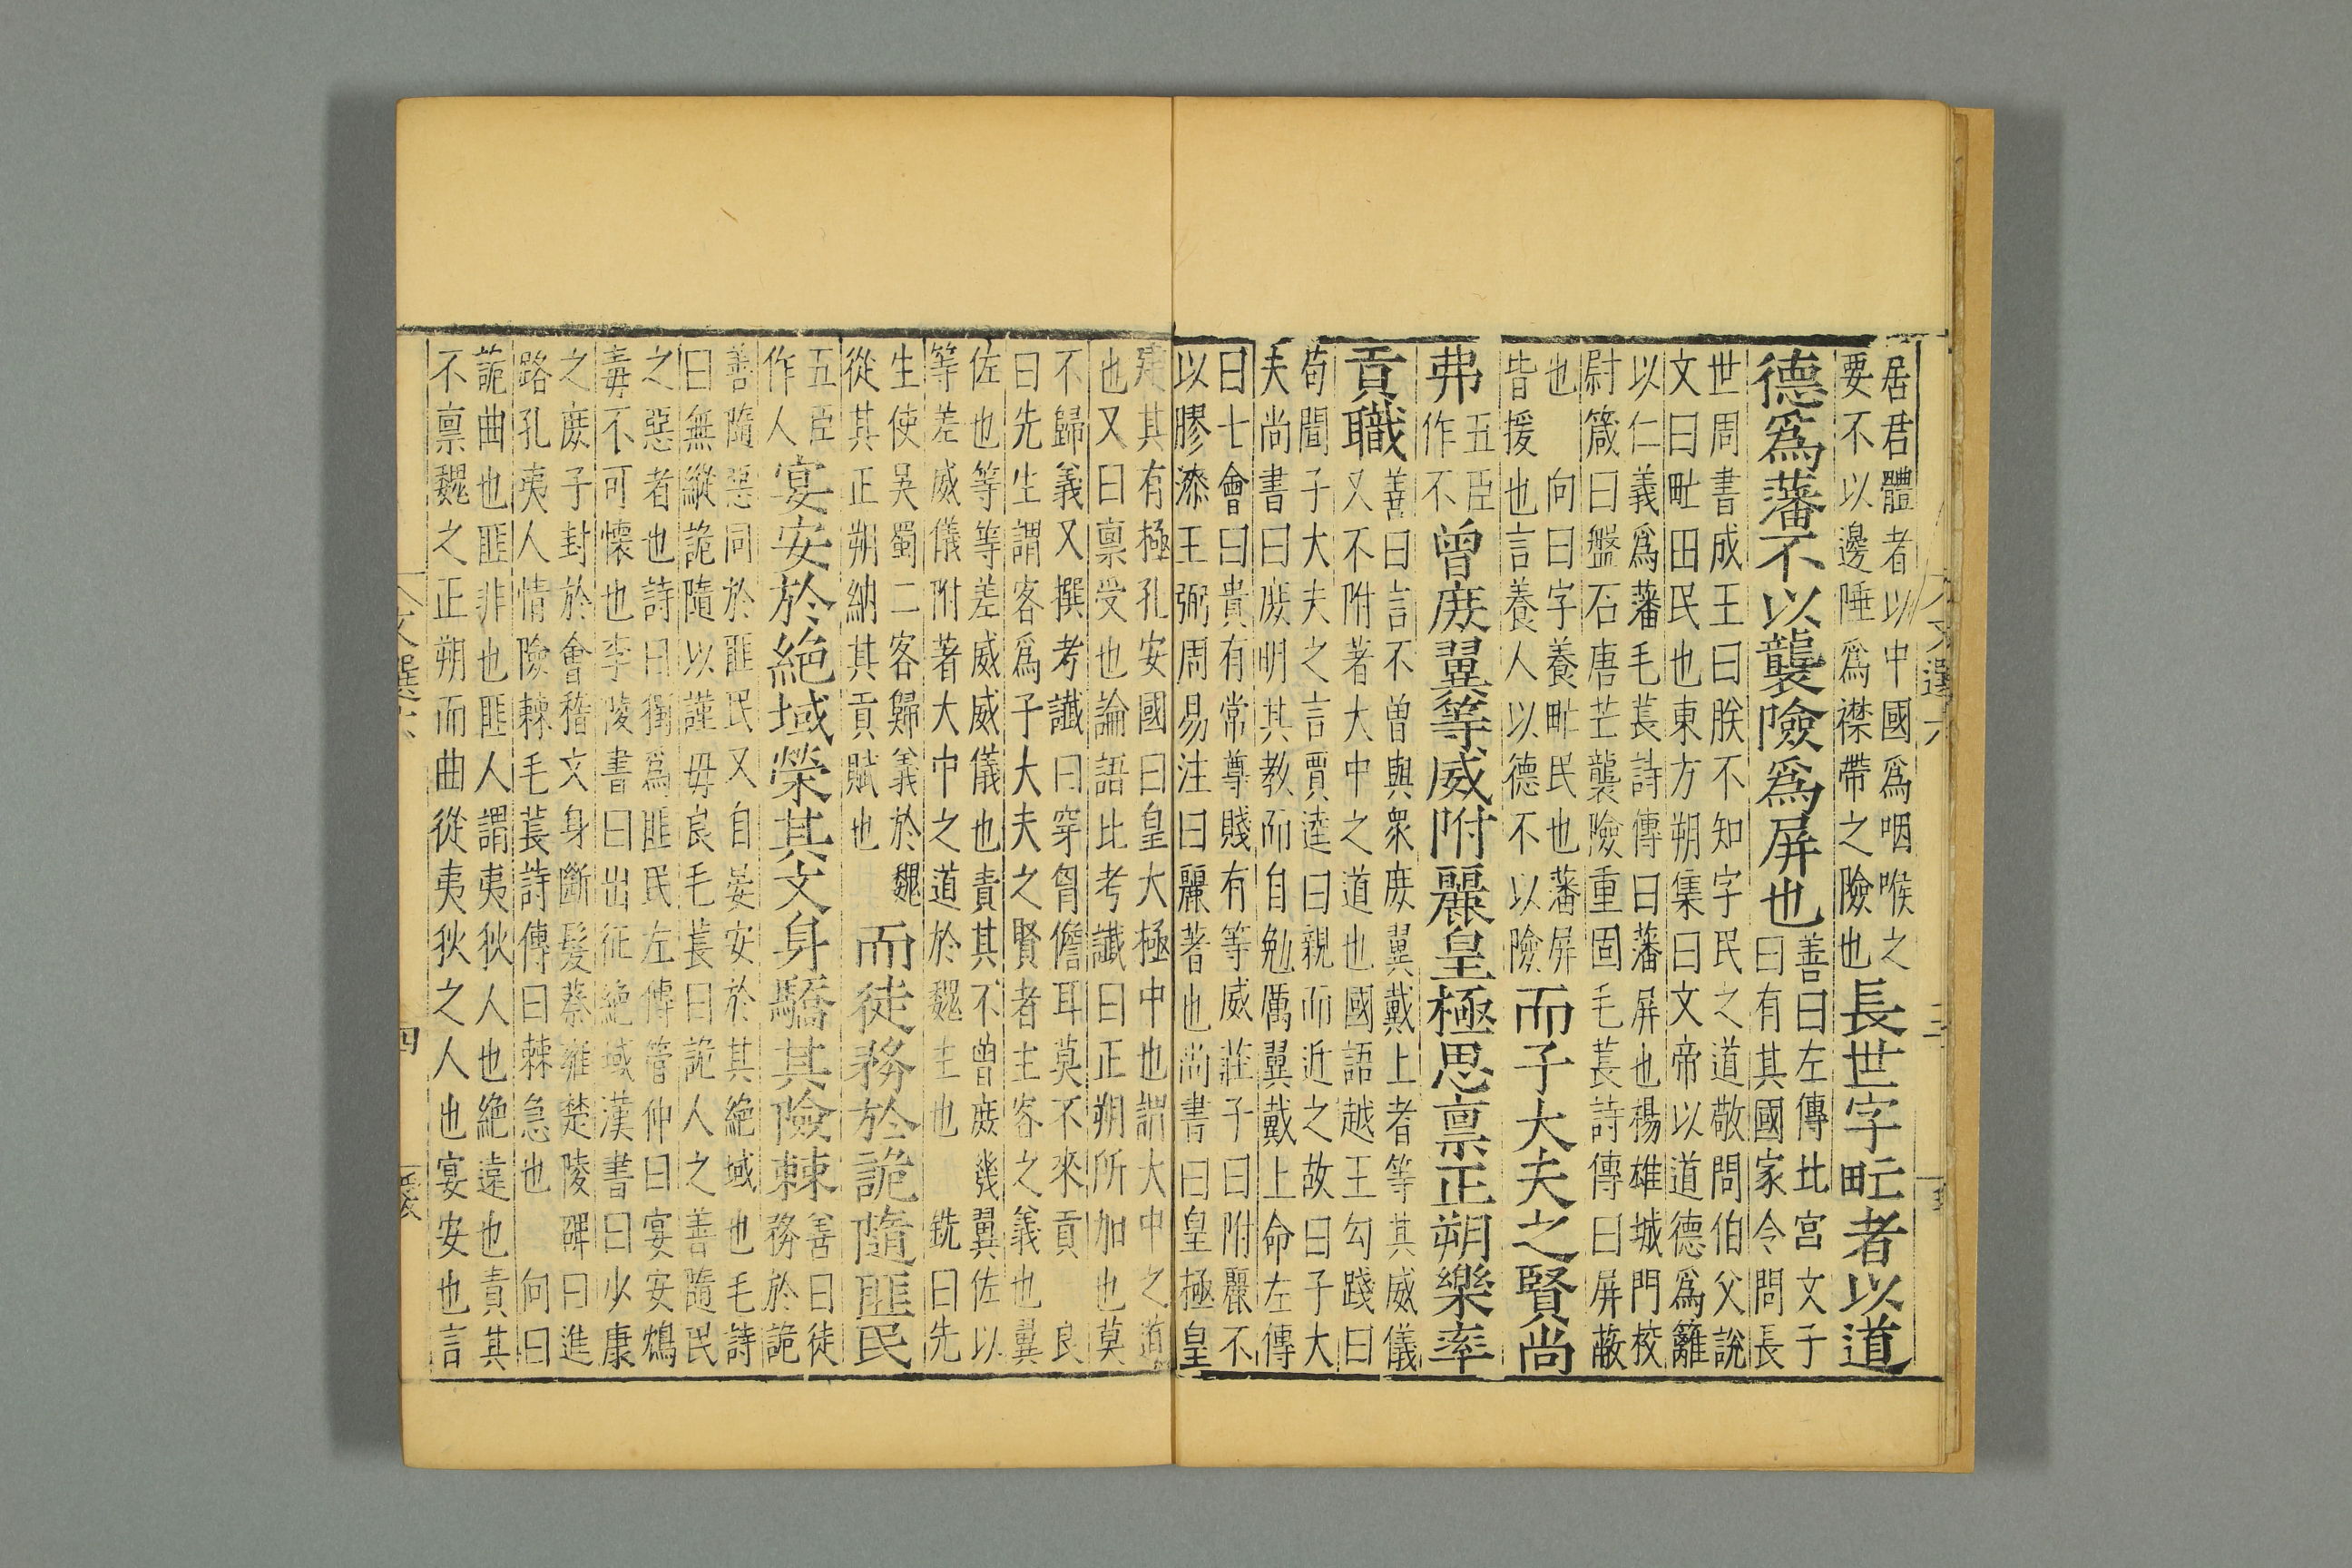 居君體者以中國爲咽喉之
要不以邊陲爲襟帶之險也
長世字甿者以道
德爲藩不以襲險爲屏也
善曰左傳北宮文子
曰有其國家令問長
世周書成王曰朕不知字民之道敬問伯父說
文曰甿田民也東方朔集曰文帝以道德爲籬
以仁義爲藩毛萇詩傳曰藩屏也楊雄城門校
尉箴曰盤石唐芒襲險重固毛萇詩傳曰屏蔽
也 向曰字養甿民也藩屏
皆援也言養人以德不以險
而子大夫之賢尚
弗
五臣
作不
曾庻翼等威附麗皇極思禀正朔樂率
貢職
善曰言不曾與衆庻翼戴上者等其威儀
又不附著大中之道也國語越王勾踐曰
苟聞子大夫之言賈逵曰親而近之故曰子大
夫尚書曰庻明其教而自勉厲翼戴上命左傳
曰士會曰貴有常尊賤有等威莊子曰附麗不
以膠漆王弼周易注曰麗著也尚書曰皇極皇
建其有極孔安國曰皇大極中也謂大中之道
也又曰禀受也論語比考讖曰正朔所加也莫
不歸義又撰考讖曰穿胷儋耳莫不來貢 良
曰先生謂客爲子大夫之賢者主客之義也翼
佐也等等差威威儀也責其不曾庻幾翼佐以
等差威儀附著大中之道於魏主也 銑曰先
生使吳蜀二客歸義於魏
從其正朔納其貢賦也
而徒務於詭隨匪民
五臣
作人
宴安於絕域榮其文身驕其險棘
善曰徒
務於詭
善隨惡同於匪民又自宴安於其絕域也毛詩
曰無縱詭隨以謹毋良毛萇曰詭人之善隨民
之惡者也詩曰獨爲匪民左傳管仲曰宴安鴆
毒不可懷也李陵書曰出征絕域漢書曰少康
之庻子封於會稽文身斷髮蔡雍楚陵碑曰進
路孔夷人情險棘毛萇詩傳曰棘急也 向曰
詭曲也匪非也匪人謂夷狄人也絕遠也責其
不禀魏之正朔而曲從夷狄之人也宴安也言
文選六
三
四